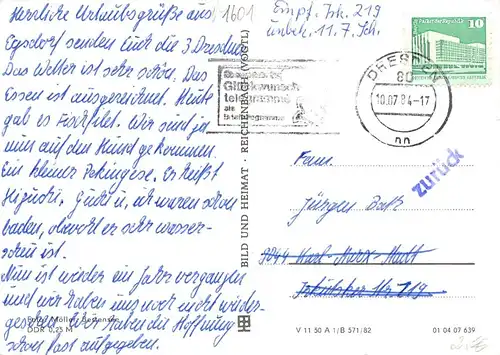 Herzliche Urlaubsgrüße aus
Egsdorf senden Euch die 3 Dresdner
Das Wetter ist sehr schön. Das
Essen ist ausgezeichnet. Heute
gab es Fischfilet. Wir sind ja
nun auf den Hund gekommen.
Ein kleiner Pekingese. Er heißt
und ich, wir waren schon
baden, obwohl er sehr wasser-
scheu ist.
Nun ist wieder ein Jahr vergangen
und wir haben uns noch nicht wieder-
gesehen. Wir haben die Hoffnung
schon fast aufgegeben.
Foto: Müller, Bestensee
DDR 0,25 M
1601
Empf. Irk. 219
unbek. 11.7. Sch.
Palast der Republik
10
DDR
Glückwunsch
telegramme
als
DRESDEN
80
10.07.84-17
nn
BILD UND HEIMAT · REICHENBACH (VOGTL)
zurück
Fam.
Jürgen
9044 Karl-Marx-Stadt
Irkutsker Str. 219
V 11 50 A 1/B 571/82
01 04 07 639